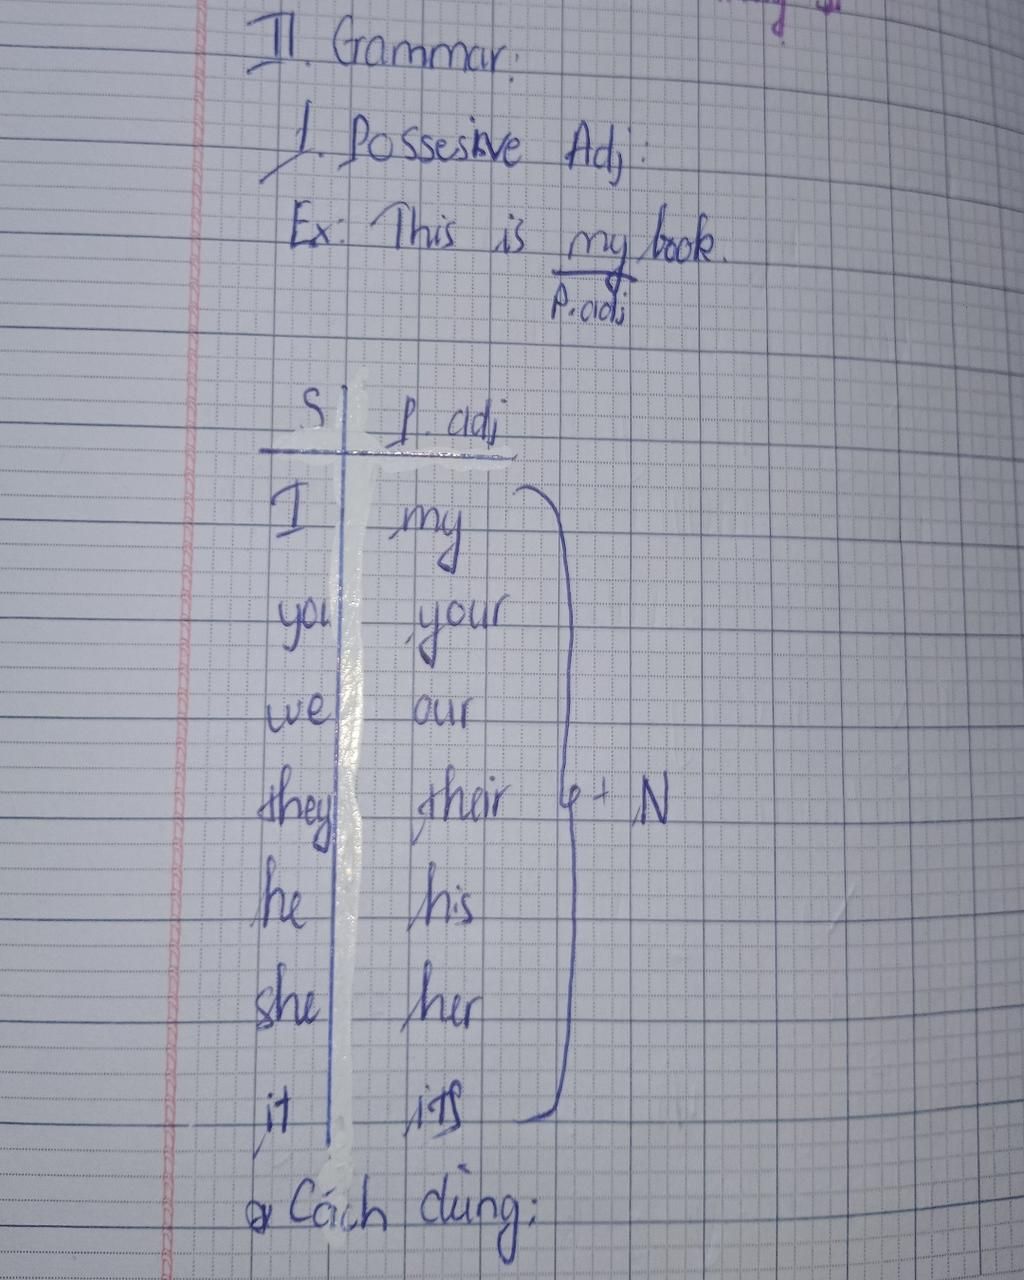 II. Grammar:
1. Possesive Adj:
Ex: This is my book.
P. adj
S P. adj
I my
you your
we our
they their + N
he his
she her
it its
Cách dùng: